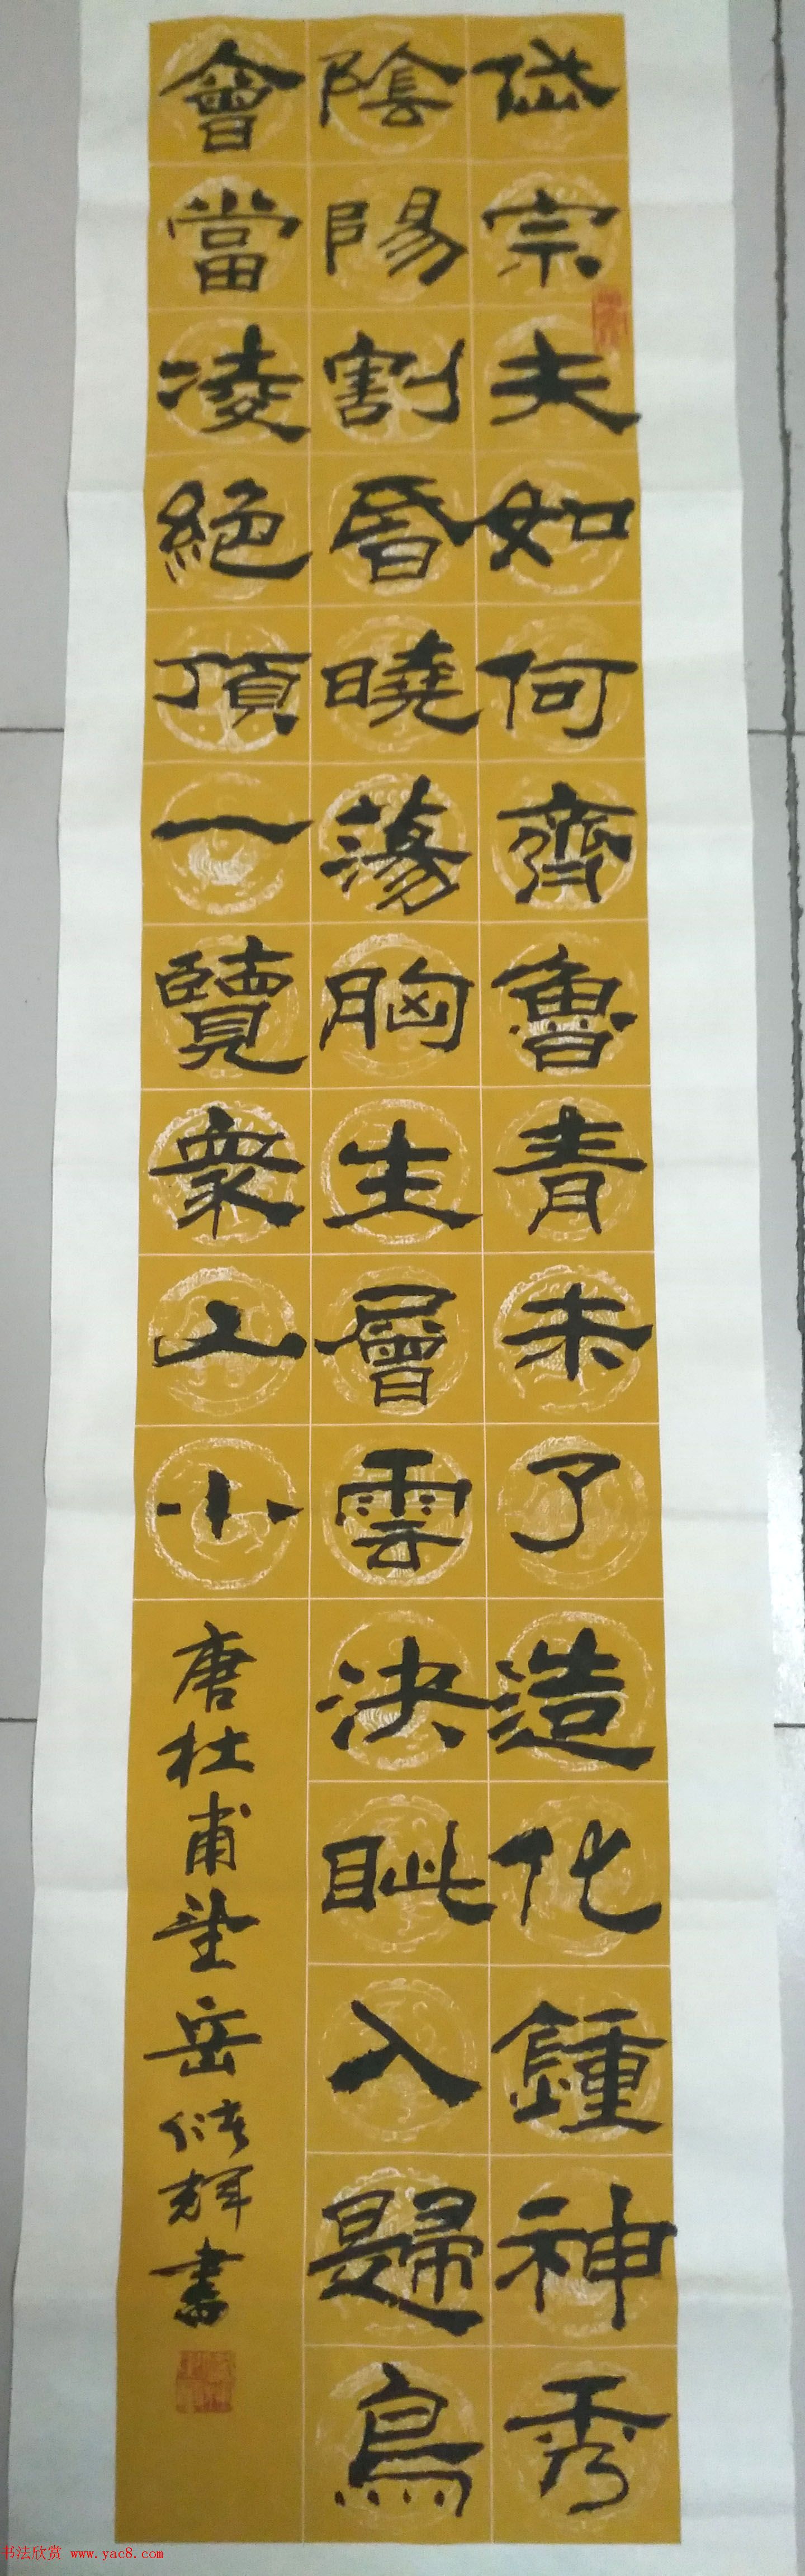 岱宗夫如何齊魯青未了造化鍾神秀
陰陽割昏曉蕩胸生層雲決眦入歸鳥
會當凌絕頂一覽衆山小
唐杜甫望岳 輝書
书法欣赏 www.yac8.com